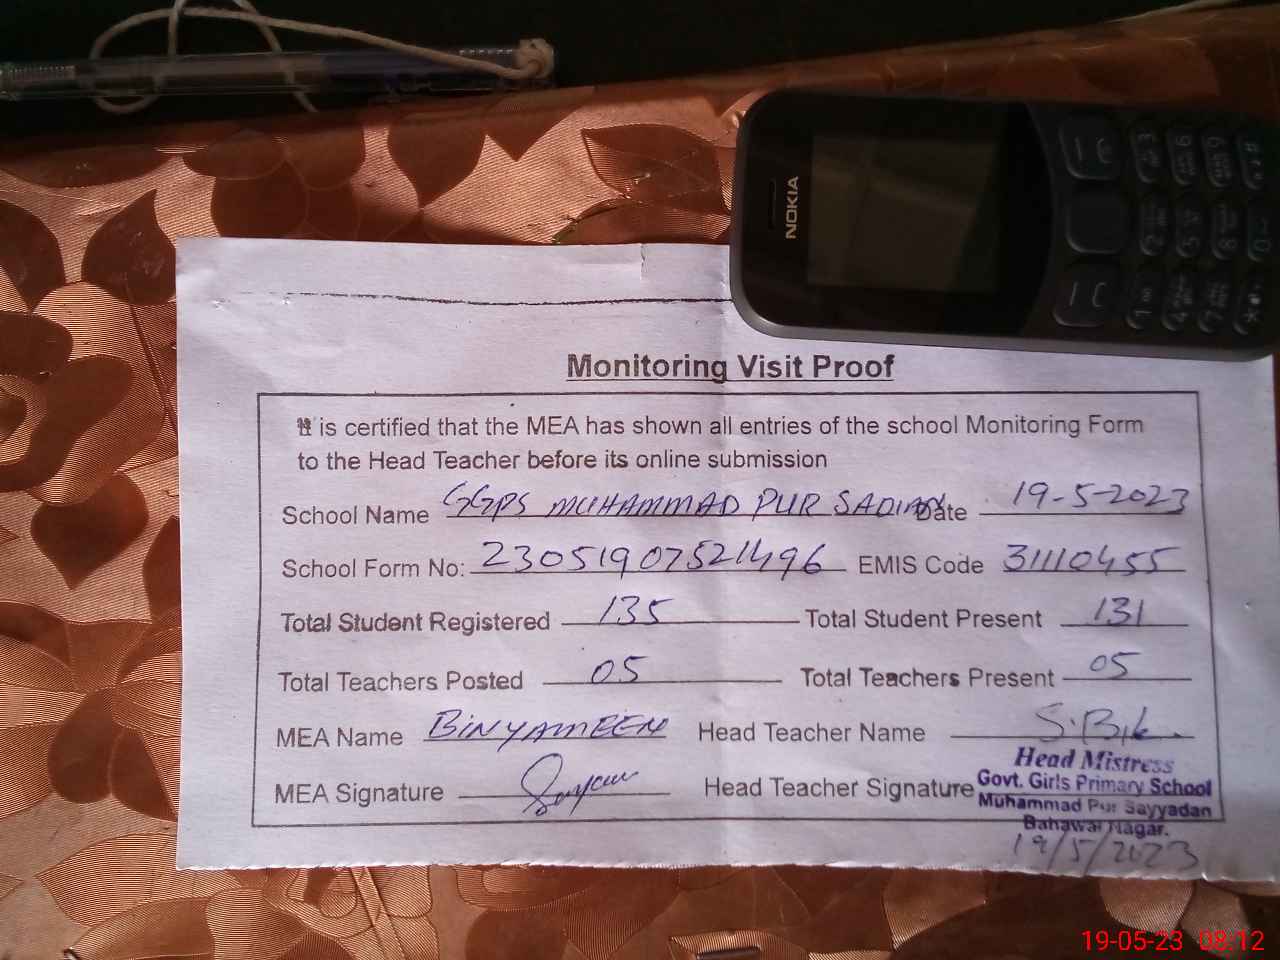 NOKIA
Monitoring Visit Proof
It is certified that the MEA has shown all entries of the school Monitoring Form
to the Head Teacher before its online submission
School Name GGPS MUHAMMAD PUR SADIAN Date 19-5-2023
School Form No: 23051907521496 EMIS Code 31110455
Total Student Registered 135 Total Student Present 131
Total Teachers Posted 05 Total Teachers Present 05
MEA Name BINYAMEEN Head Teacher Name
MEA Signature Head Teacher Signature
Head Mistress
Govt. Girls Primary School
Muhammad Pur Sayyadan
Bahawal Nagar.
19/5/2023
19-05-23 08:12